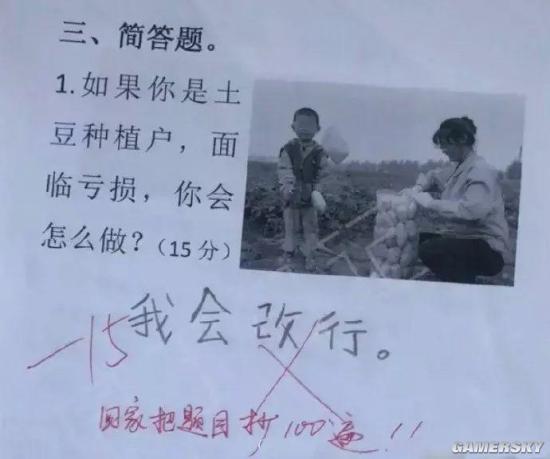 三、简答题。
1.如果你是土
豆种植户，面
临亏损，你会
怎么做？（15 分）
-15
我会改行。
回家把题目抄100遍!!
GAMERSKY